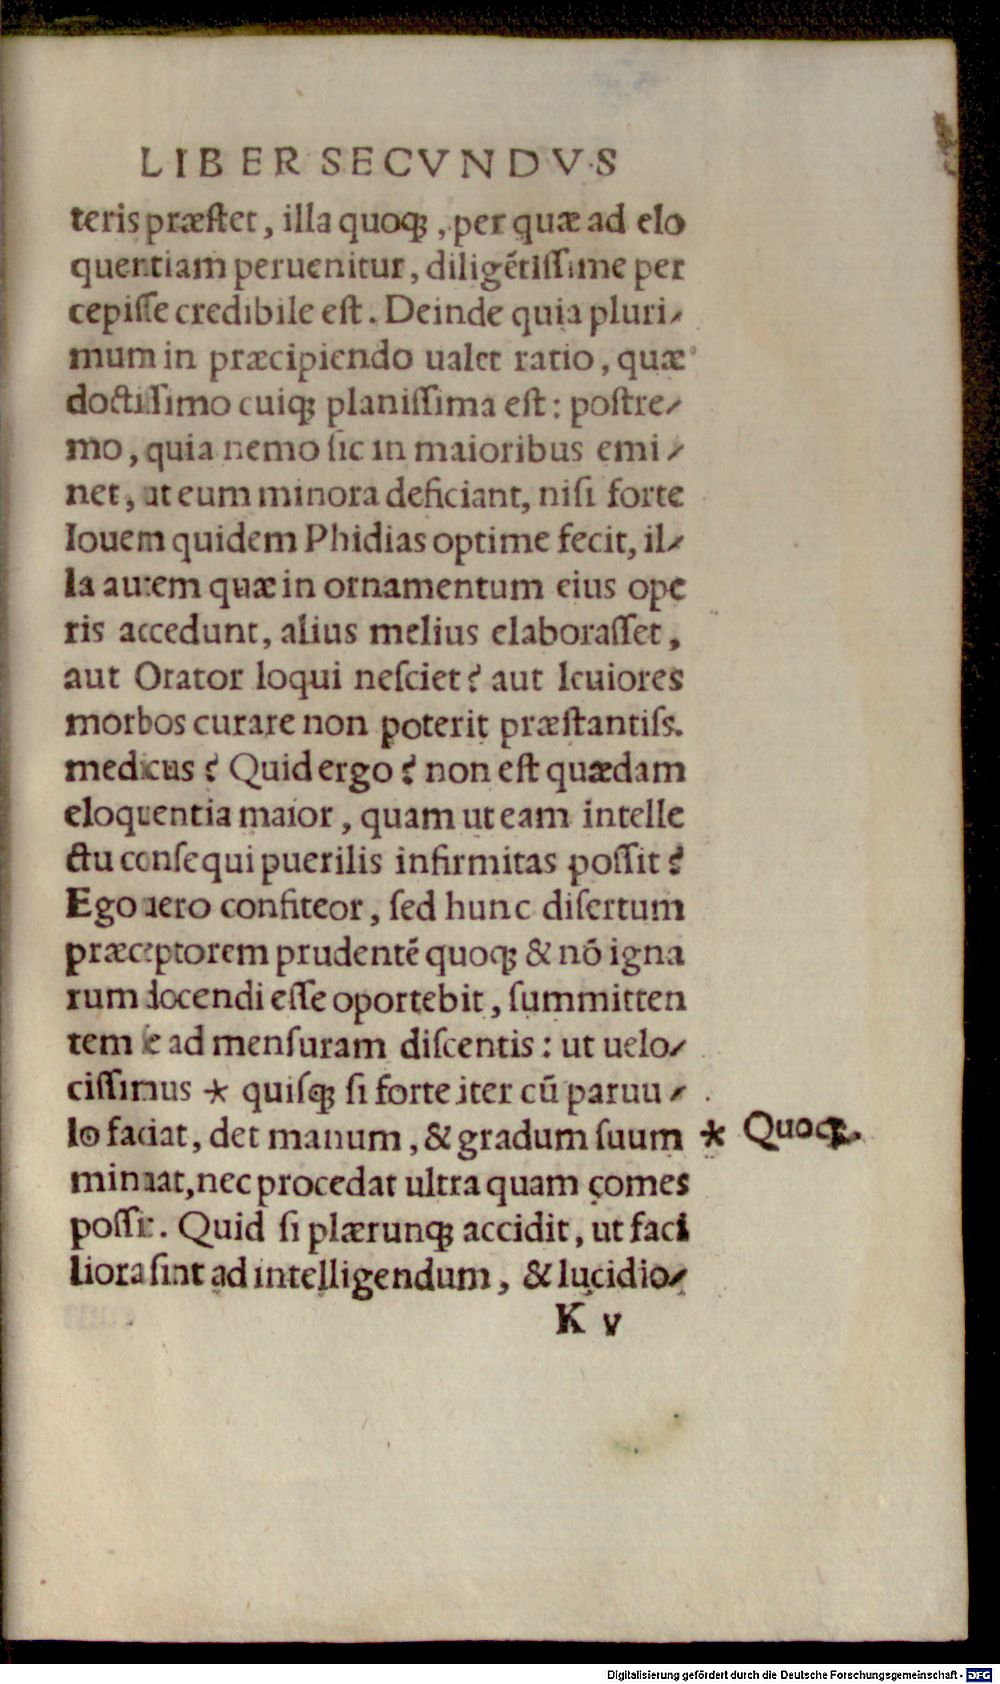 LIBER SECVNDVS
teris præſtet, illa quoq;, per quæ ad elo
quentiam peruenitur, diligẽtiſſime per
cepiſſe credibile eſt. Deinde quia pluri-
mum in præcipiendo ualet ratio, quæ
doctiſſimo cuiq; planiſſima eſt: poſtre-
mo, quia nemo ſic in maioribus emi-
net, ut eum minora deficiant, niſi forte
Iouem quidem Phidias optime fecit, il-
la autem quæ in ornamentum eius ope
ris accedunt, alius melius elaboraſſet,
aut Orator loqui neſciet? aut leuiores
morbos curare non poterit præſtantiſs.
medicus? Quid ergo? non eſt quædam
eloquentia maior, quam ut eam intelle
ctu conſequi puerilis infirmitas poſſit?
Ego uero confiteor, ſed hunc diſertum
præceptorem prudentẽ quoq; & nõ igna
rum docendi eſſe oportebit, ſummitten
tem ſe ad menſuram diſcentis: ut uelo-
ciſſimus * quiſq; ſi forte iter cũ paruu-
lo faciat, det manum, & gradum ſuum * Quoq;.
minuat, nec procedat ultra quam comes
poſſit. Quid ſi plærunq; accidit, ut faci
liora ſint ad intelligendum, & lucidio-
K v
Digitalisierung gefördert durch die Deutsche Forschungsgemeinschaft - DFG